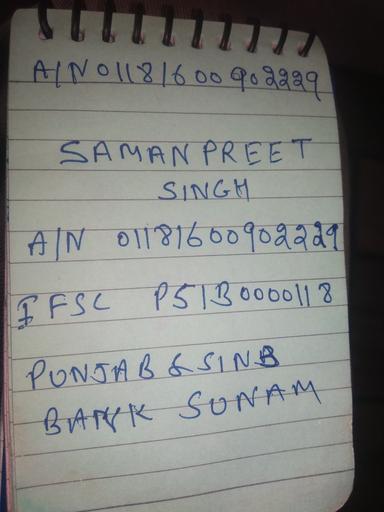 A/N 01181600902229
SAMANPREET
SINGH
A/N 01181600902229
IFSC PSIB0000118
PUNJAB & SINB
BANK SUNAM